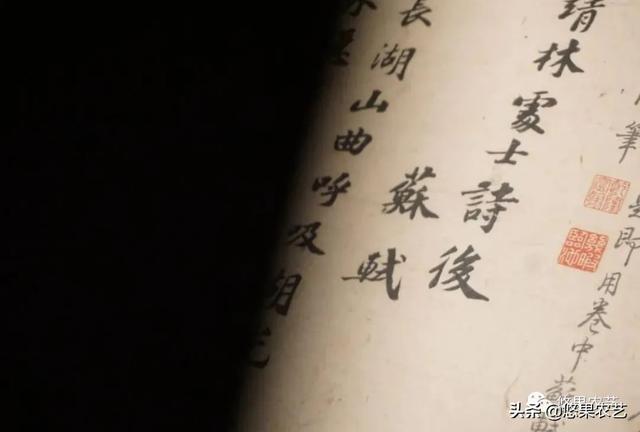 筆是即用卷中
靖林處士詩後
蘇軾
長湖山曲呼吸
悠果农艺
头条 @悠果农艺